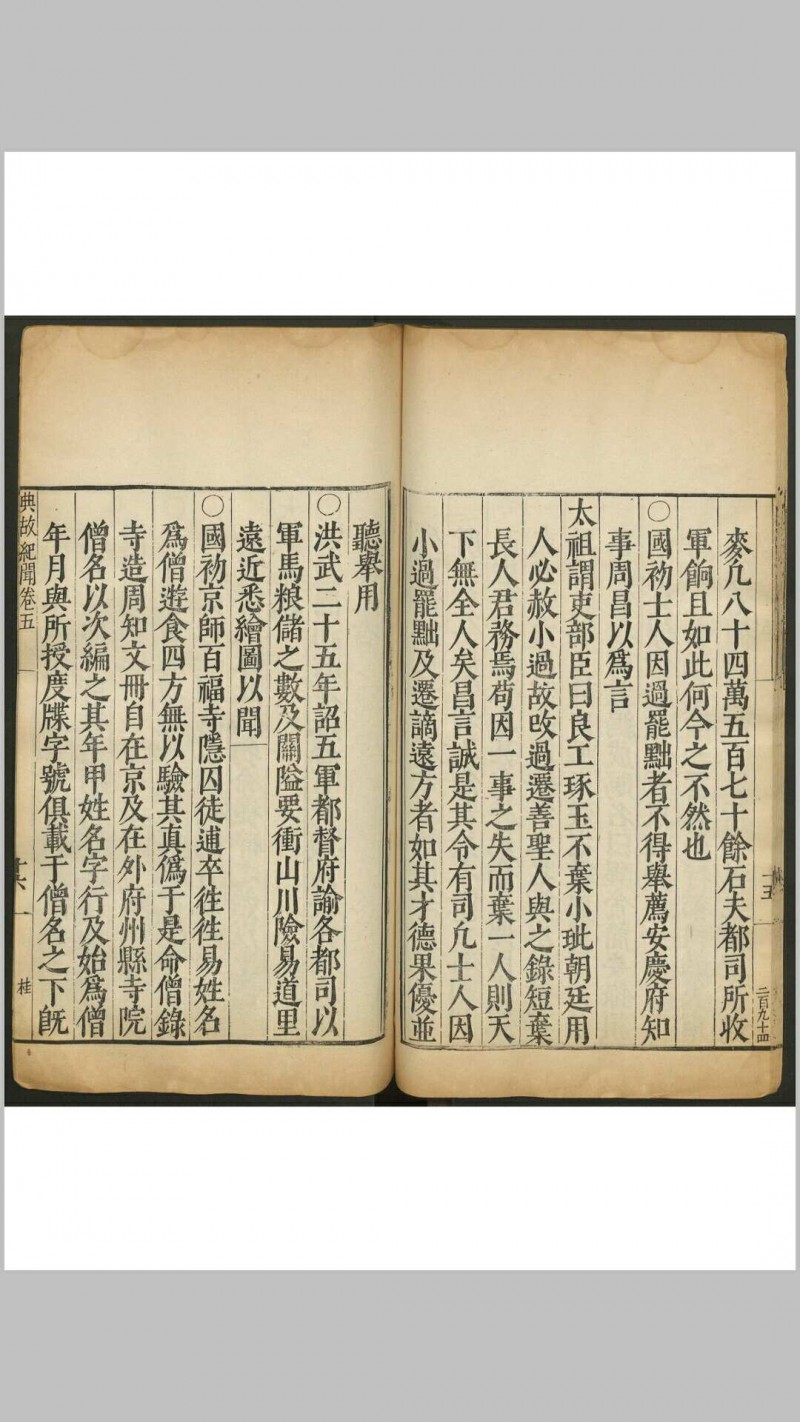 麥凡八十四萬五百七十餘石夫都司所收
軍餉且如此何今之不然也
○國初士人因過罷黜者不得舉薦安慶府知
事周昌以爲言
太祖謂吏部臣曰良工琢玉不棄小玼朝廷用
人必赦小過故改過遷善聖人與之錄短棄
長人君務焉苟因一事之失而棄一人則天
下無全人矣昌言誠是其令有司凡士人因
小過罷黜及遷謫遠方者如其才德果優並
十五
二百九十四
聽舉用
○洪武二十五年詔五軍都督府諭各都司以
軍馬粮儲之數及關隘要衝山川險易道里
遠近悉繪圖以聞
○國初京師百福寺隱囚徒逋卒往往易姓名
爲僧遊食四方無以驗其真偽于是命僧錄
寺造周知文冊自在京及在外府州縣寺院
僧名以次編之其年甲姓名字行及始爲僧
年月與所授度牒字號俱載于僧名之下旣
典故紀聞卷五
桂